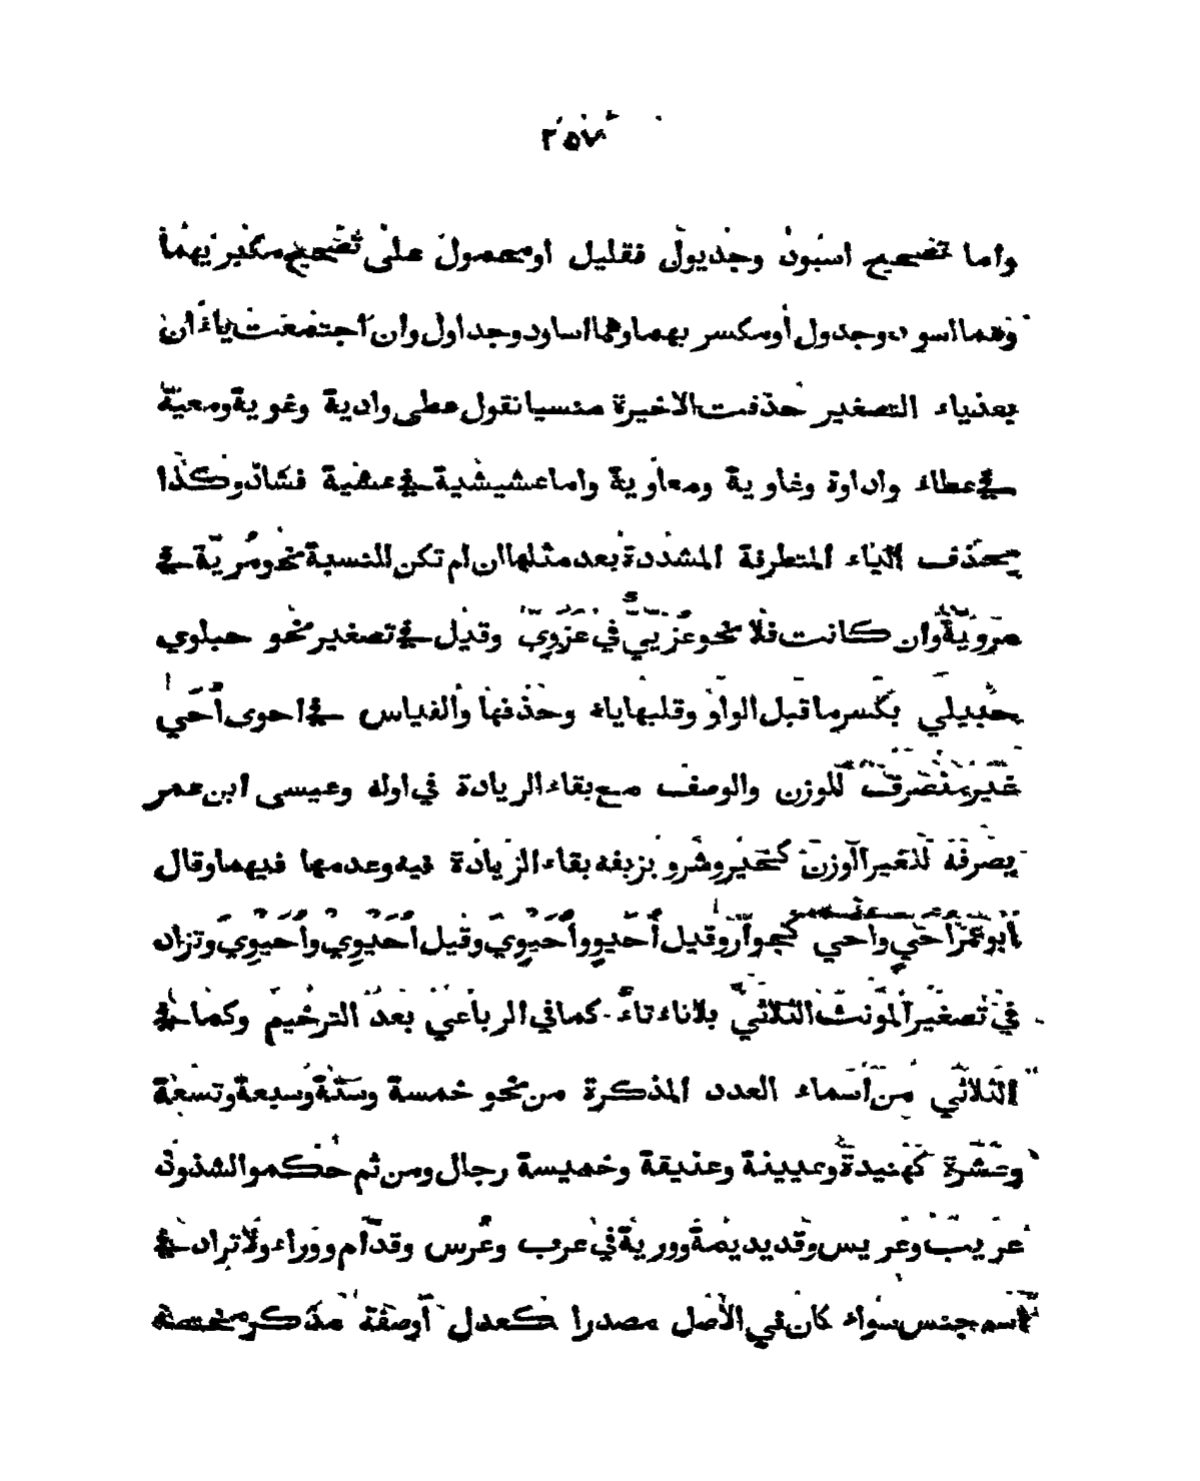 ٢٥٧
واما تصحيح اسيود وجديول فقليل او محمول على تصحيح مكبريهما
وهما اسود وجدول أو مكسر يهما وهما اساود وجداول وان اجتمعت ياءان
بعد ياء التصغير حذفت الاخيرة منسيا نقول عطى وادية وغوية ومعيّة
في عطاء واداوة وغاوية ومعاوية واما عشيشية في عشية فشاذ وكذا
يحذف الياء المتطرفة المشددة بعد مثلها ان لم تكن للنسبة نحو مُريّة في
مروية وان كانت فلا نحو عُزَيِّيّ في غَزَوِيّ وقيل في تصغير نحو حبلوي
حُبَيلي بكسر ما قبل الواو وقلبها ياء وحذفها والقياس في احوى أُحَيّ
غير منصرف للوزن والوصف مع بقاء الزيادة في اوله وعيسى ابن عمر
يصرفه لتغير الوزن كخير وشر بقاء الزيادة فيه وعدمها فيهما وقال
أبو عمر أحي واحي كجوار وقيل أحيو وأحيوي وقيل احيوي واحيوي وتزاد
في تصغير المونث الثلاثي بلا تاء تاءٌ كما في الرباعي بعد الترخيم وكما في
الثلاثي من أسماء العدد المذكرة من نحو خمسة وستة وسبعة وتسعة
وعشرة كهنيدة وعيينة وعنيقة وخميسة رجال ومن ثم حكموا الشذوذ
عريب وعريس وقديديمة وورية في عرب وعُرس وقدّام ووراء ولا تزاد في
اسم جنس سواء كان في الأصل مصدرا كعدل أو صفة مذكر مختصة